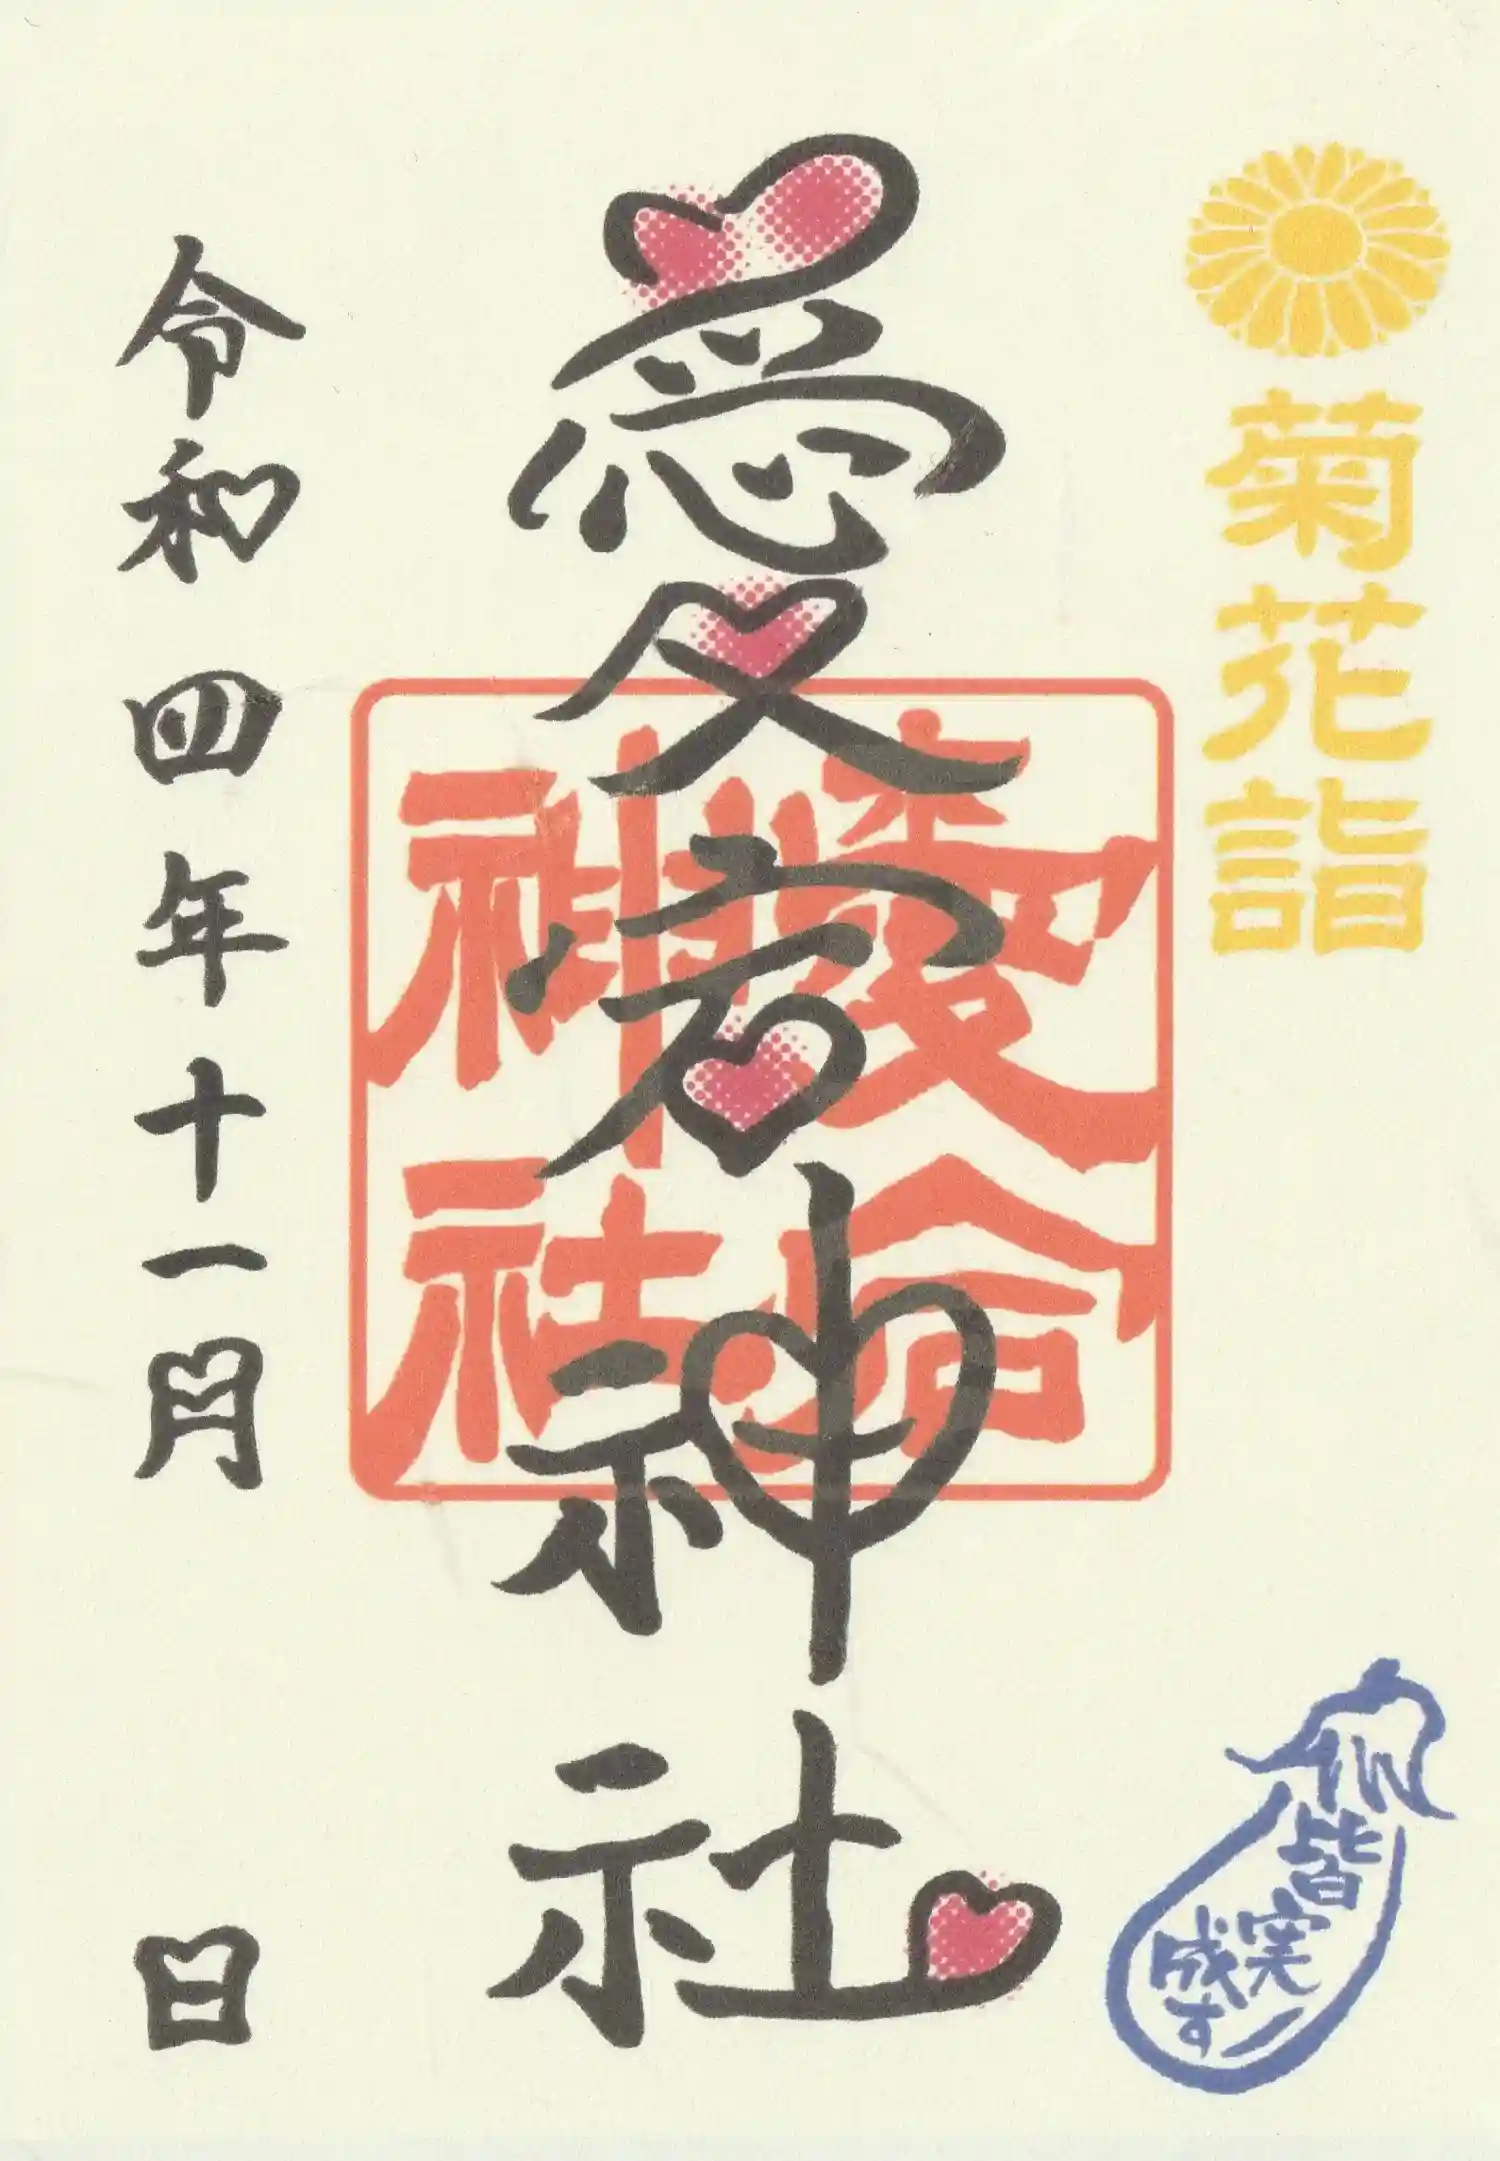 菊花詣
皆
実
成す
愛宕神社
愛宕
神社
令和四年十一月 日